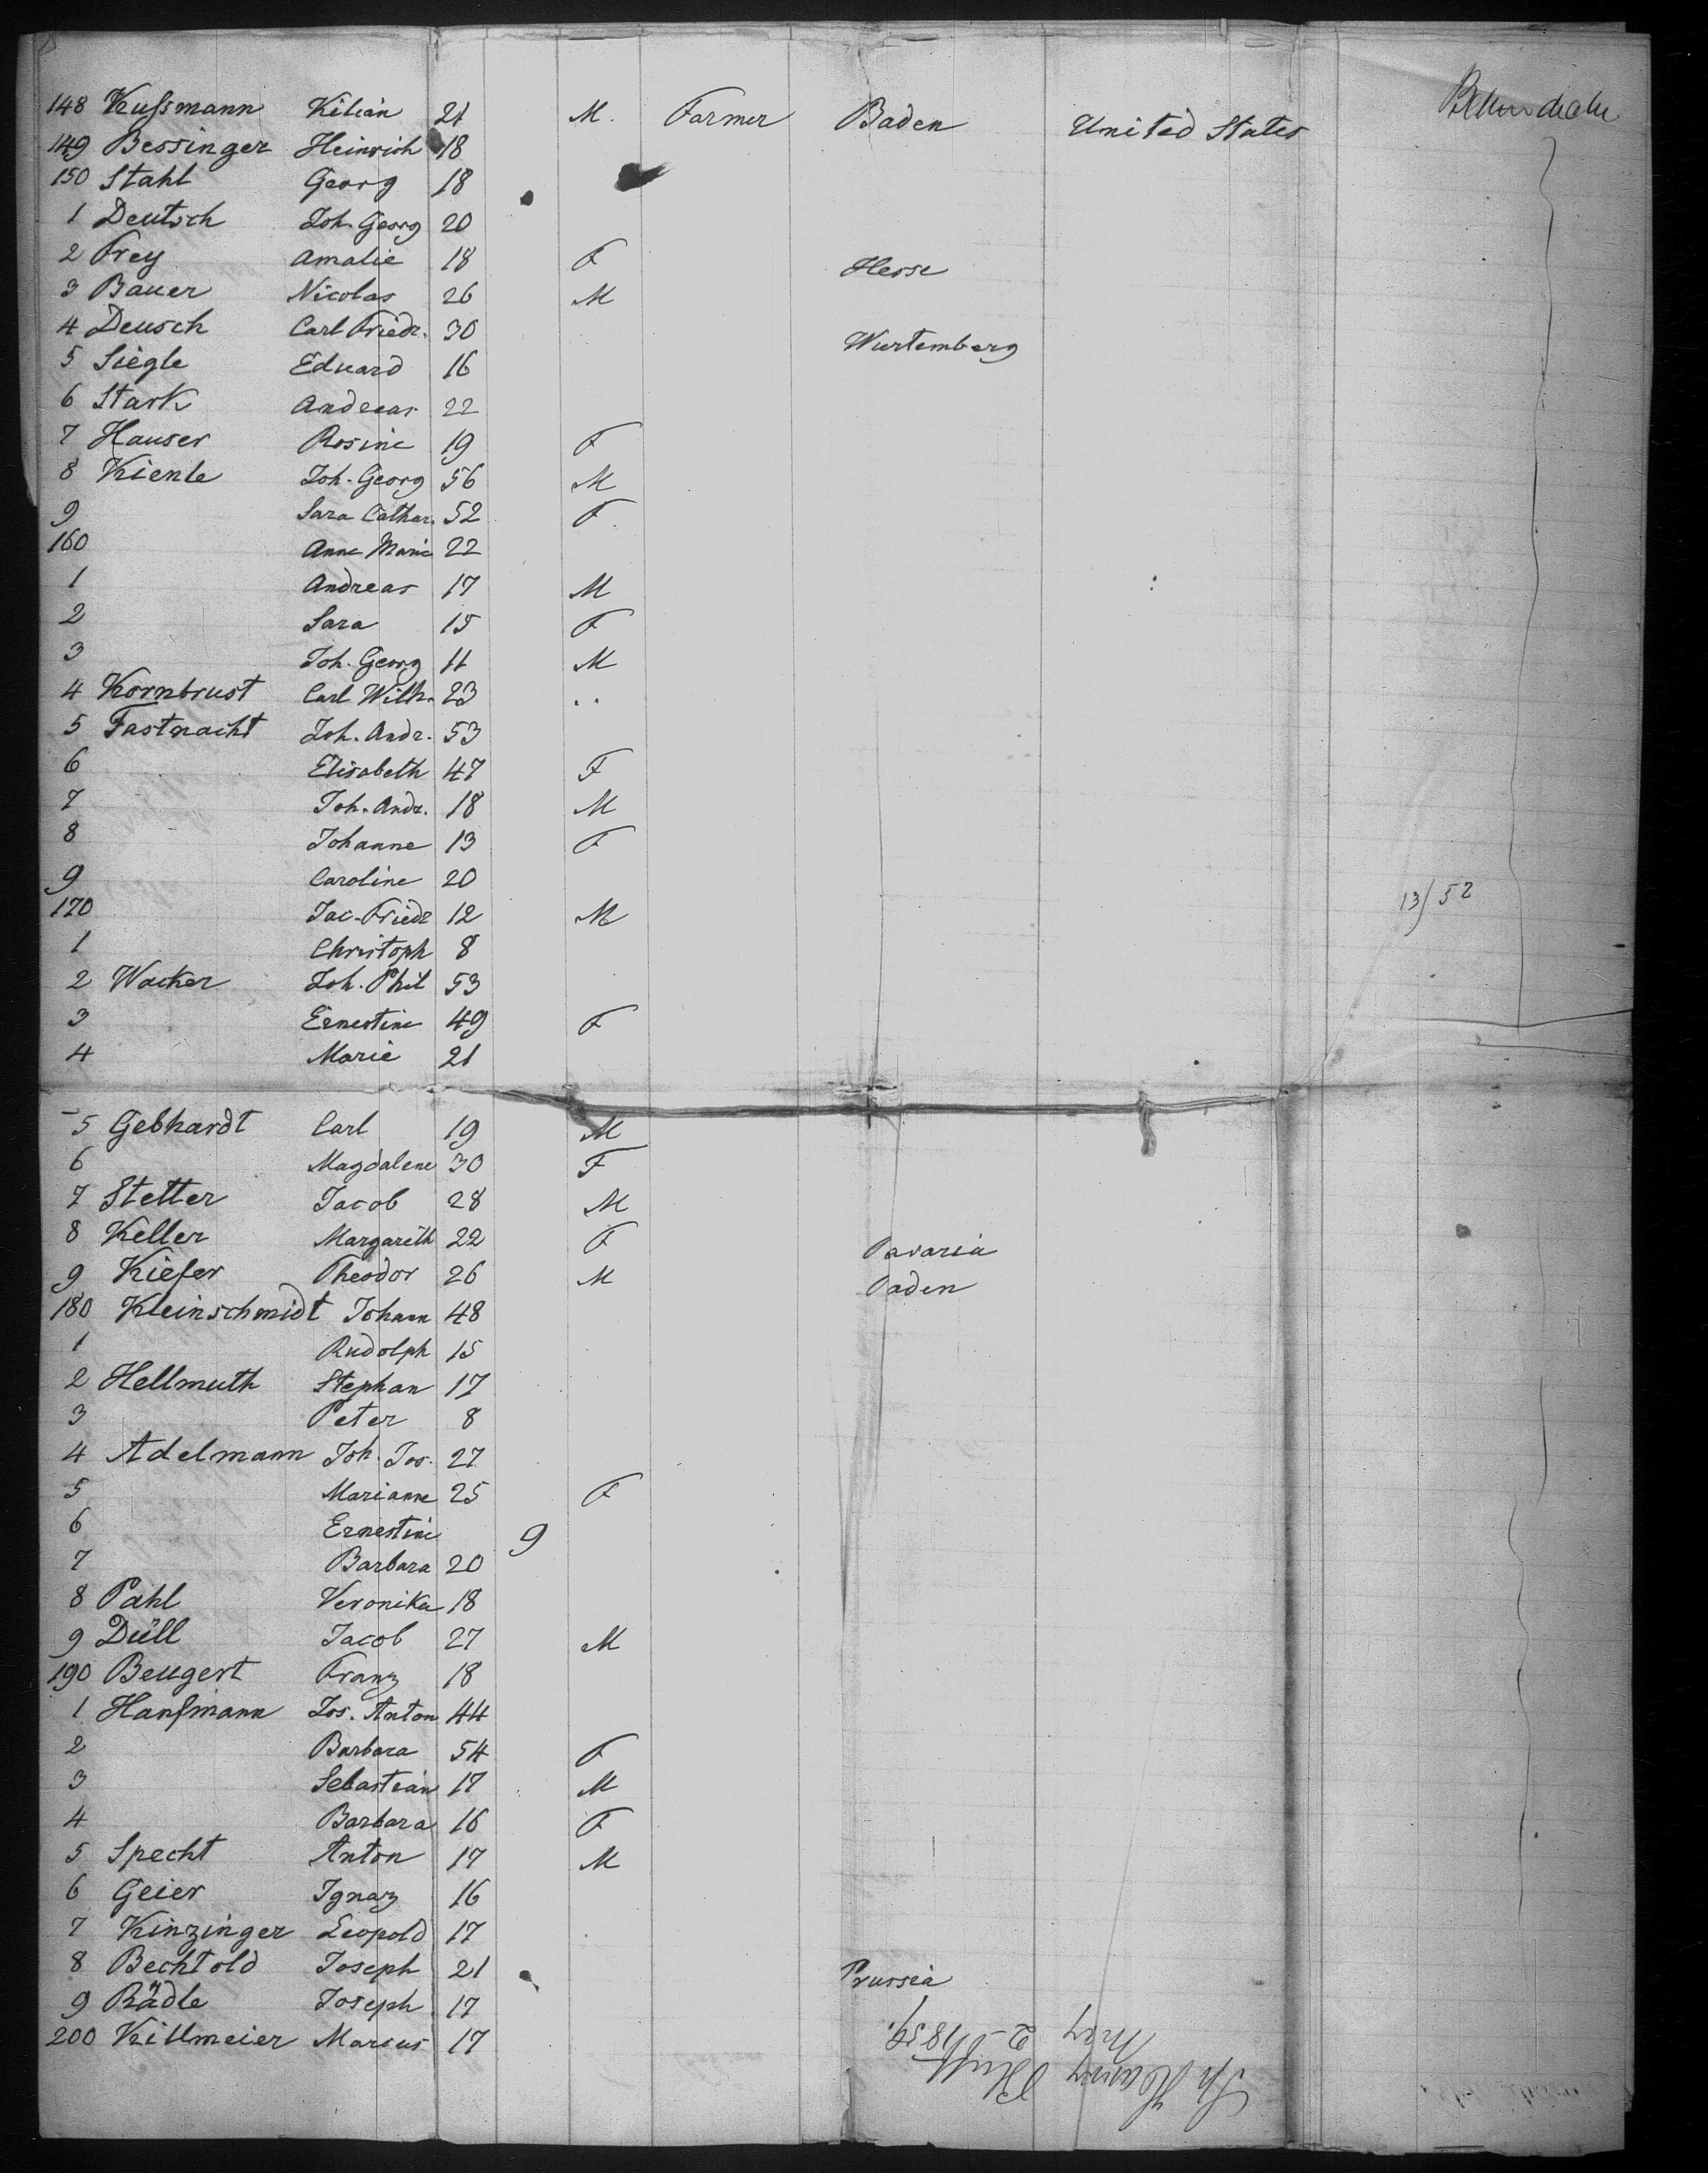 148 Kussmann Kilian 21 M. Farmer Baden United States
149 Bessinger Heinrich 18
150 Stahl Georg 18
1 Deutsch Joh. Georg 20
2 Frey Amalie 18 F Hesse
3 Bauer Nicolas 26 M
4 Deusch Carl Friedr. 30 Wurtemberg
5 Siegle Eduard 16
6 Stark Andreas 22
7 Hauser Rosine 19 F
8 Kienle Joh. Georg 56 M
9 Sara Cathar. 52 F
160 Anne Marie 22
1 Andreas 17 M
2 Sara 15 F
3 Joh. Georg 11 M
4 Kornbrust Carl Wilh. 23 ..
5 Fastnacht Joh. Andr. 53
6 Elisabeth 47 F
7 Joh. Andr. 18 M
8 Johanne 13 F
9 Caroline 20
13/52
170 Jac. Friedr 12 M
1 Christoph 8
2 Wacker Joh. Phil 53
3 Ernestine 49 F
4 Marie 21
5 Gebhardt Carl 19 M
6 Magdalene 30 F
7 Stetter Jacob 28 M
8 Keller Margareth 22 F Bavaria
9 Kiefer Theodor 26 M Baden
180 Kleinschmidt Johann 48
1 Rudolph 15
2 Hellmuth Stephan 17
3 Peter 8
4 Adelmann Joh. Jos. 27
5 Marianne 25 F
6 Ernestine 9
7 Barbara 20
8 Pahl Veronika 18
9 Düll Jacob 27 M
190 Beugert Franz 18
1 Hanfmann Jos. Anton 44
2 Barbara 54 F
3 Sebastian 17 M
4 Barbara 16 F
5 Specht Anton 17 M
6 Geier Ignaz 16
7 Kinzinger Leopold 17
8 Bechtold Joseph 21 Prussia
9 Rädle Joseph 17
200 Killmeier Marcus 17
May 2 1859.